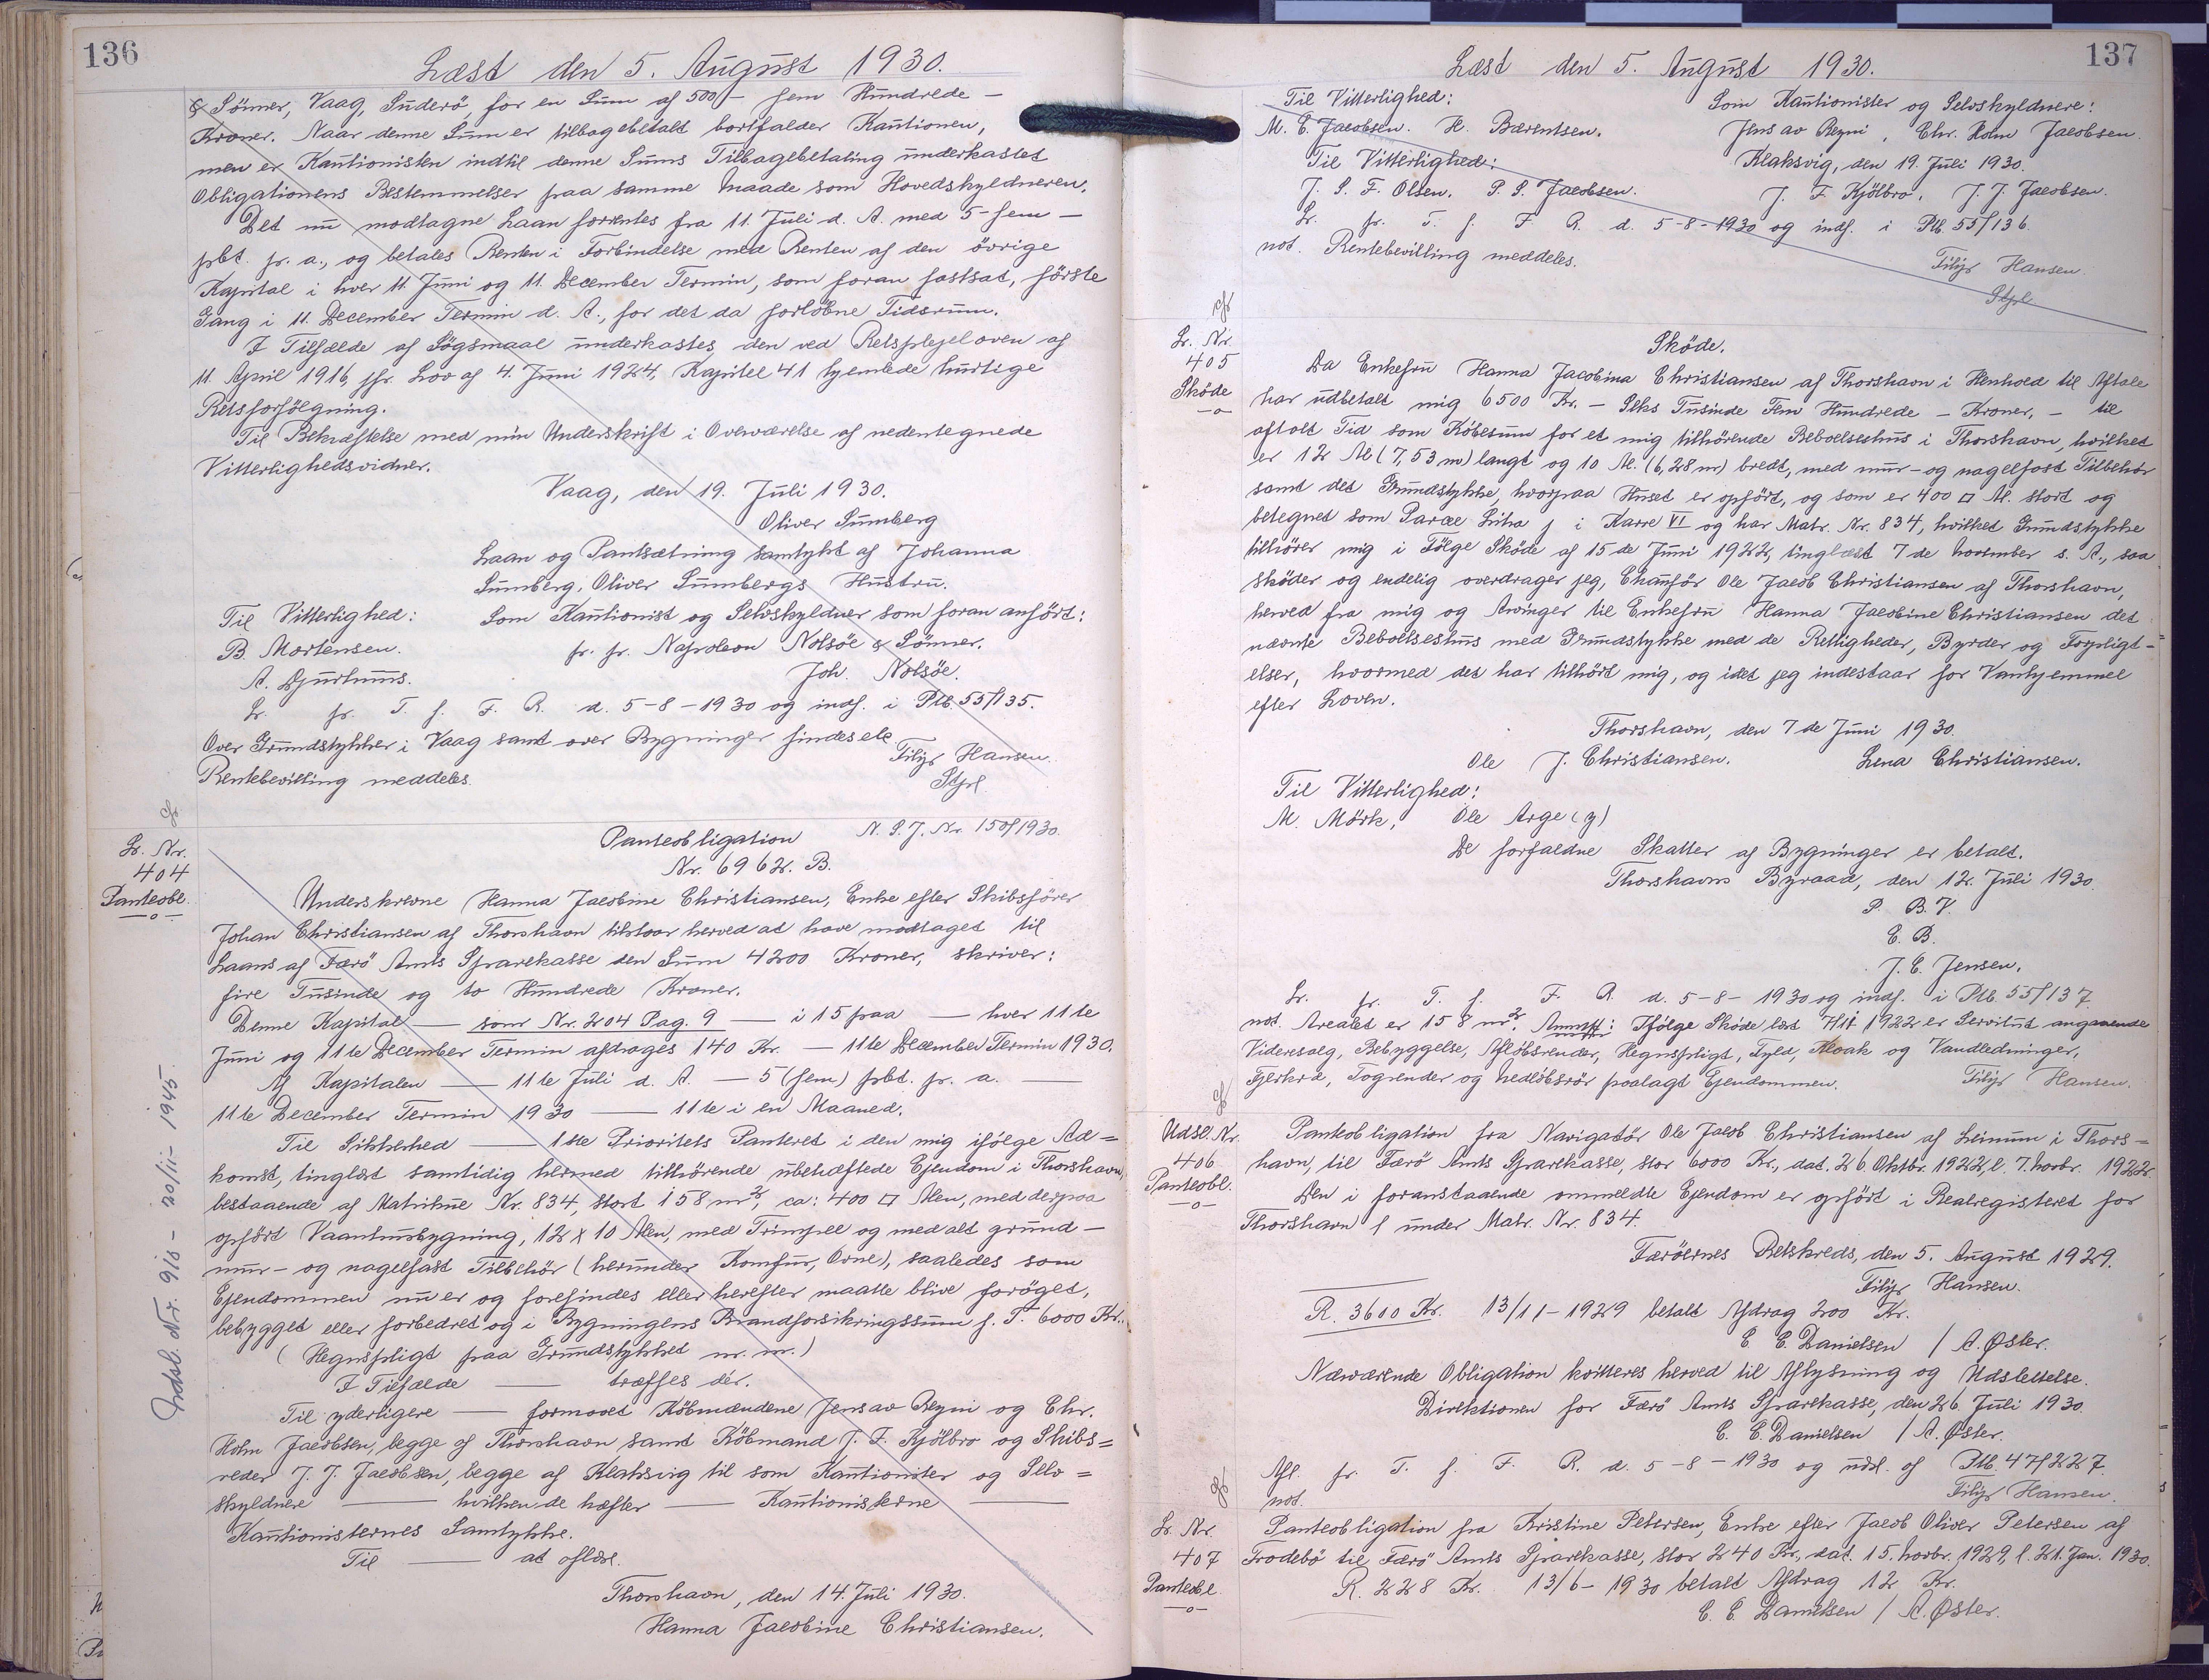 136
Læst den 5. August 1930.
& Sönner, Vaag, Suderö, for en Sum af 500,- fem Hundrede -
Kroner. Naar denne Sum er tilbagebetalt bortfalder Kautionen,
men er Kautionisten indtil denne Sums Tilbagebetaling underkastet
Obligationens Bestemmelser paa samme Maade som Hovedskyldneren.
Det nu modtagne Laan forrentes fra 11. Juli d. A. med 5-fem -
pbt. pr. a., og betales Renten i Forbindelse med Renten af den övrige
Kapital i hver 11. Juni og 11. December Termin, som foran fastsat, förste
Gang i 11. December Termin d. A., for det da forlöbne Tidsrum.
I Tilfælde af Sögsmaal underkastes den ved Retsplejeloven af
11. April 1916, jfr. Lov af 4. Juni 1924, Kapitel 41 hjemlede hurtige
Retsforfölgning.
Til Bekræftelse med min Underskrift i Overværelse af nedentegnede
Vitterlighedsvidner.
Vaag, den 19. Juli 1930.
Oliver Sumberg
Laan og Pantsætning samtykt af Johanna
Sumberg, Oliver Sumbergs Hustru.
Til Vitterlighed: Som Kautionist og Selvskyldner som foran anfört:
B. Mortensen. pr. pr. Napoleon Nolsöe & Sönner.
A. Djurhuus. Joh. Nolsöe.
Lr. fr. T. f. F. R. d. 5-8-1930 og indf. i Ptb. 55/135.
Over Grundstykker i Vaag samt over Bygninger findes etc
Rentebevilling meddeles. Filip Hansen.
Stpl
Lr. Nr.
404
Panteobl.
Panteobligation N. P. J. Nr. 150/1930
Nr. 6962. B.
Underskrevne Hanna Jacobine Christiansen, Enke efter Skibsförer
Johan Christiansen af Thorshavn tilstaar herved at have modtaget til
Laans af Færö Amts Sparekasse den Sum 4200 Kroner, skriver:
fire Tusinde og to Hundrede Kroner.
Denne Kapital — som Nr. 204 Pag. 9 — i 15 paa — hver 11te
Juni og 11te December Termin afdrages 140 Kr. — 11te December Termin 1930.
Af Kapitalen — 11te Juli d. A. — 5 (fem) pbt. pr. a.
11te December Termin 1930 — 11te i en Maaned.
Til Sikkerhed — 1ste Prioritets Panteret i den mig ifölge Ad=
komst, tinglæst samtidig hermed tilhörende ubehæftede Ejendom i Thorshavn,
bestaaende af Matrikule Nr. 834, stort 158 m², ca: 400 □ Alen, med derpaa
opfört Vaanhusbygning, 12 x 10 Alen, med Trimpel og med alt grund-
mur- og nagelfast Tilbehör (herunder Komfur, Ovne), saaledes som
Ejendommen nu er og forefindes eller herefter maatte blive forøget,
bebygget eller forbedret og i Bygningens Brandforsikringssum f. T. 6000 Kr.
(Hegnspligt paa Grundstykket m. m.)
I Tilfælde — træffes dér.
Til yderligere — formaaet Köbmændene Jens av Reyni og Chr.
Holm Jacobsen, begge af Thorshavn samt Köbmand J. F. Kjölbro og Skibs=
reder J. J. Jacobsen, begge af Klaksvig til som Kautionister og Selv=
skyldnere — hvilken de hæfter — Kautionisterne —
Kautionisternes Samtykke.
Til — at aflæse.
Thorshavn, den 14. Juli 1930.
Hanna Jacobine Christiansen.
Udsl. Nr. 910 - 20/11- 1945.
137
Læst den 5. August 1930.
Til Vitterlighed: Som Kautionister og Selvskyldnere:
M. C. Jacobsen. H. Bærentsen. Jens av Reyni, Chr. Holm Jacobsen.
Til Vitterlighed: Klaksvig, den 19. Juli 1930.
J. S. F. Olsen. P. S. Jacobsen. J. F. Kjölbro. J. J. Jacobsen.
Lr. fr. T. f. F. R. d. 5-8-1930 og indf. i Ptb. 55/136.
not. Rentebevilling meddeles. Filip Hansen.
Stpl
Lr. Nr.
405
Sköde
Sköde.
Da Enkefru Hanna Jacobina Christiansen af Thorshavn i Henhold til Aftale
har udbetalt mig 6500 Kr. - Seks Tusinde Fem Hundrede - Kroner, - til
aftalt Tid som Köbesum for et mig tilhörende Beboelseshus i Thorshavn, hvilket
er 12 Al (7,53 m) langt og 10 Al. (6,28 m) bredt, med mur- og nagelfast Tilbehör
samt det Grundstykke, hvorpaa Huset er opfört, og som er 400 □ Al. stort og
betegnet som Parcel Litra j i Karre VI og har Matr. Nr. 834, hvilket Grundstykke
tilhörer mig i Fölge Sköde af 15de Juni 1922, tinglæst 7de November s. A., saa
sköder og endelig overdrager jeg, Chauför Ole Jacob Christiansen af Thorshavn,
herved fra mig og Arvinger til Enkefru Hanna Jacobine Christiansen det
nævnte Beboelseshus med Grundstykke med de Rettigheder, Byrder og Forpligt-
elser, hvormed det har tilhört mig, og idet jeg indestaar for Vanhjemmel
efter Loven.
Thorshavn, den 7de Juni 1930.
Ole J. Christiansen. Lena Christiansen.
Til Vitterlighed:
M. Mörk, Ole Arge (y)
De forfaldne Skatter af Bygninger er betalt.
Thorshavns Byraad, den 12. Juli 1930.
P. B. V.
E. B.
J. C. Jensen.
Lr. fr. T. f. F. R. d. 5-8-1930 og indf. i Ptb. 55/137.
not. Arealet er 158 m². Anmrk: Ifölge Sköde læst 7/11 1922 er Servitut angaaende
Videresalg, Bebyggelse, Aflöbsrender, Hegnspligt, Fyld, Kloak og Vandledninger,
Togrender og Nedlöbsrör paalagt Ejendommen. Filip Hansen.
Udsl. Nr.
406
Panteobl.
Panteobligation fra Navigatör Ole Jacob Christiansen af Leinum i Thors=
havn, til Færö Amts Sparekasse, stor 6000 Kr., dat. 26. Oktbr. 1922, l. 7. Novbr. 1922.
Den i foranstaaende ommeldte Ejendom er opfört i Realregisteret for
Thorshavn l under Matr. Nr. 834.
Færöernes Retskreds, den 5. August 1929.
Filip Hansen.
R. 3600 Kr. 13/11-1929 betalt Afdrag 200 Kr.
C. C. Danielsen / A. Øster.
Nærværende Obligation kvitteres herved til Aflysning og Udslettelse.
Direktionen for Færö Amts Sparekasse, den 26. Juli 1930.
C. C. Danielsen / A. Øster.
Afl. fr. T. f. F. R. d. 5-8-1930 og udsl. af Ptb. 47/227.
not. Filip Hansen.
Lr. Nr.
407
Panteobl.
Panteobligation fra Kristine Petersen, Enke efter Jacob Oliver Petersen af
Frodebö til Færö Amts Sparekasse, stor 240 Kr., dat. 15. Novbr. 1929, l. 21. Jan. 1930.
R. 228 Kr. 13/6-1930 betalt Afdrag 12 Kr.
C. C. Danielsen / A. Øster.